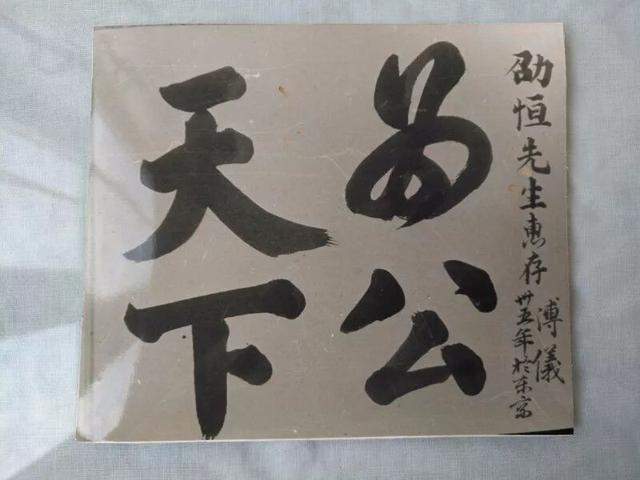 天下
為公
劭恒先生惠存
溥儀
卅五年於東京